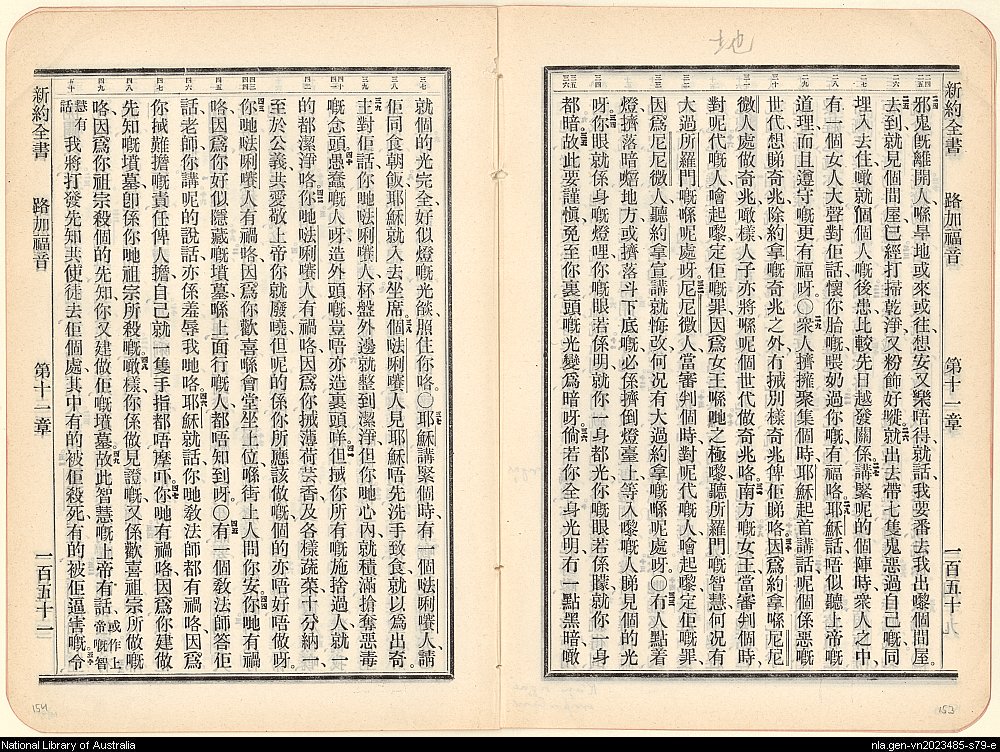 地
新約全書 路加福音 第十一章 一百五十
邪鬼嘅離開人喺旱地或來或往想安又樂唔得就話我要番去我出嚟個間屋
去到就見個間屋已經打掃乾淨又粉飾好嘥就出去帶七隻鬼惡過自己嘅同
埋入去住噉就個個人嘅後患比較先日越發關係講緊呢的個陣時衆人之中
有一個女人大聲對佢話懷你胎嘅喂奶過你嘅有福咯耶穌話唔似聽上帝嘅
道理而且遵守嘅更有福呀〇衆人擠擁聚集個時耶穌起首講話呢個係惡嘅
世代想睇奇兆除約拿嘅奇兆之外冇搣別樣奇兆俾佢睇咯因爲約拿喺尼尼
微人處做奇兆噉樣人子亦將喺呢個世代做奇兆咯南方嘅女王當審判個時
對呢代嘅人噲起嚟定佢嘅罪因爲女王喺哋之極嚟聽所羅門嘅智慧何况有
大過所羅門嘅喺呢處呀尼尼微人當審判個時對呢代嘅人噲起嚟定佢嘅罪
因爲尼尼微人聽約拿宣講就悔改何况有大過約拿嘅喺呢處呀〇冇人點着
燈擠落暗熠地方或擠落斗下底嘅必係擠倒燈臺上等入嚟嘅人睇見個的光
呀你眼就係身嘅燈哩你嘅眼若係明就你一身都光你嘅眼若係矇就你一身
都暗故此要謹愼免至你裏頭嘅光變爲暗呀倘若你全身光明冇一點黑暗噉
153
就個的光完全好似燈嘅光燄照住你咯〇耶穌講緊個時有一個㖿唎嚷人請
佢同食朝飯耶穌就入去坐席個㖿唎嚷人見耶穌唔先洗手致食就以爲出奇
主對佢話你哋㖿唎嚷人杯盤外邊就整到潔淨但你哋心內就積滿搶奪惡毒
嘅念頭愚蠢嘅人呀造外頭嘅豈唔亦造裏頭咩但搣你所有嘅施捨過人就一
的都潔淨咯你哋㖿唎嚷人有禍咯因爲你搣薄荷芸香及各樣蔬菜十分納一
至於公義共愛敬上帝你就廢嘵但呢的係你所應該做嘅個的亦唔好唔做呀
你哋㖿唎嚷人有禍咯因爲你歡喜喺會堂坐上位喺街上人問你安你哋有禍
咯因爲你好似隱藏嘅墳墓喺上面行嘅人都唔知到呀〇有一個敎法師答佢
話老師你講呢的說話亦係羞辱我哋咯耶穌就話你哋敎法師都有禍咯因爲
你搣難擔嘅責任俾人擔自己就一隻手指都唔摩吓你哋有禍咯因爲你建做
先知嘅墳墓卽係你哋祖宗所殺嘅噉樣你係做見證嘅又係歡喜祖宗所做嘅
咯因爲你祖宗殺個的先知你又建做佢嘅墳墓故此智慧嘅上帝有話或作上帝嘅智
慧有話我將打發先知共使徒去佢個處其中有的被佢殺死有的被佢逼害嘅令
新約全書 路加福音 第十一章 一百五十
154
National Library of Australia
nla.gen-vn2023485-s79-e